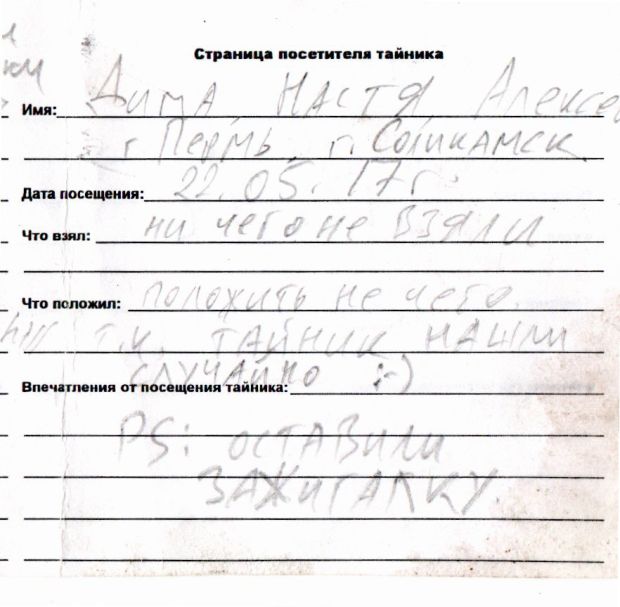 Страница посетителя тайника
Имя: Дима Настя Алексе
г Пермь г. Соликамск
Дата посещения: 22.05.17г.
Что взял: ни чего не взяли
Что положил: положить не чего.
т.к. тайник нашли
случайно :-)
Впечатления от посещения тайника:
PS: оставили
зажигалку.